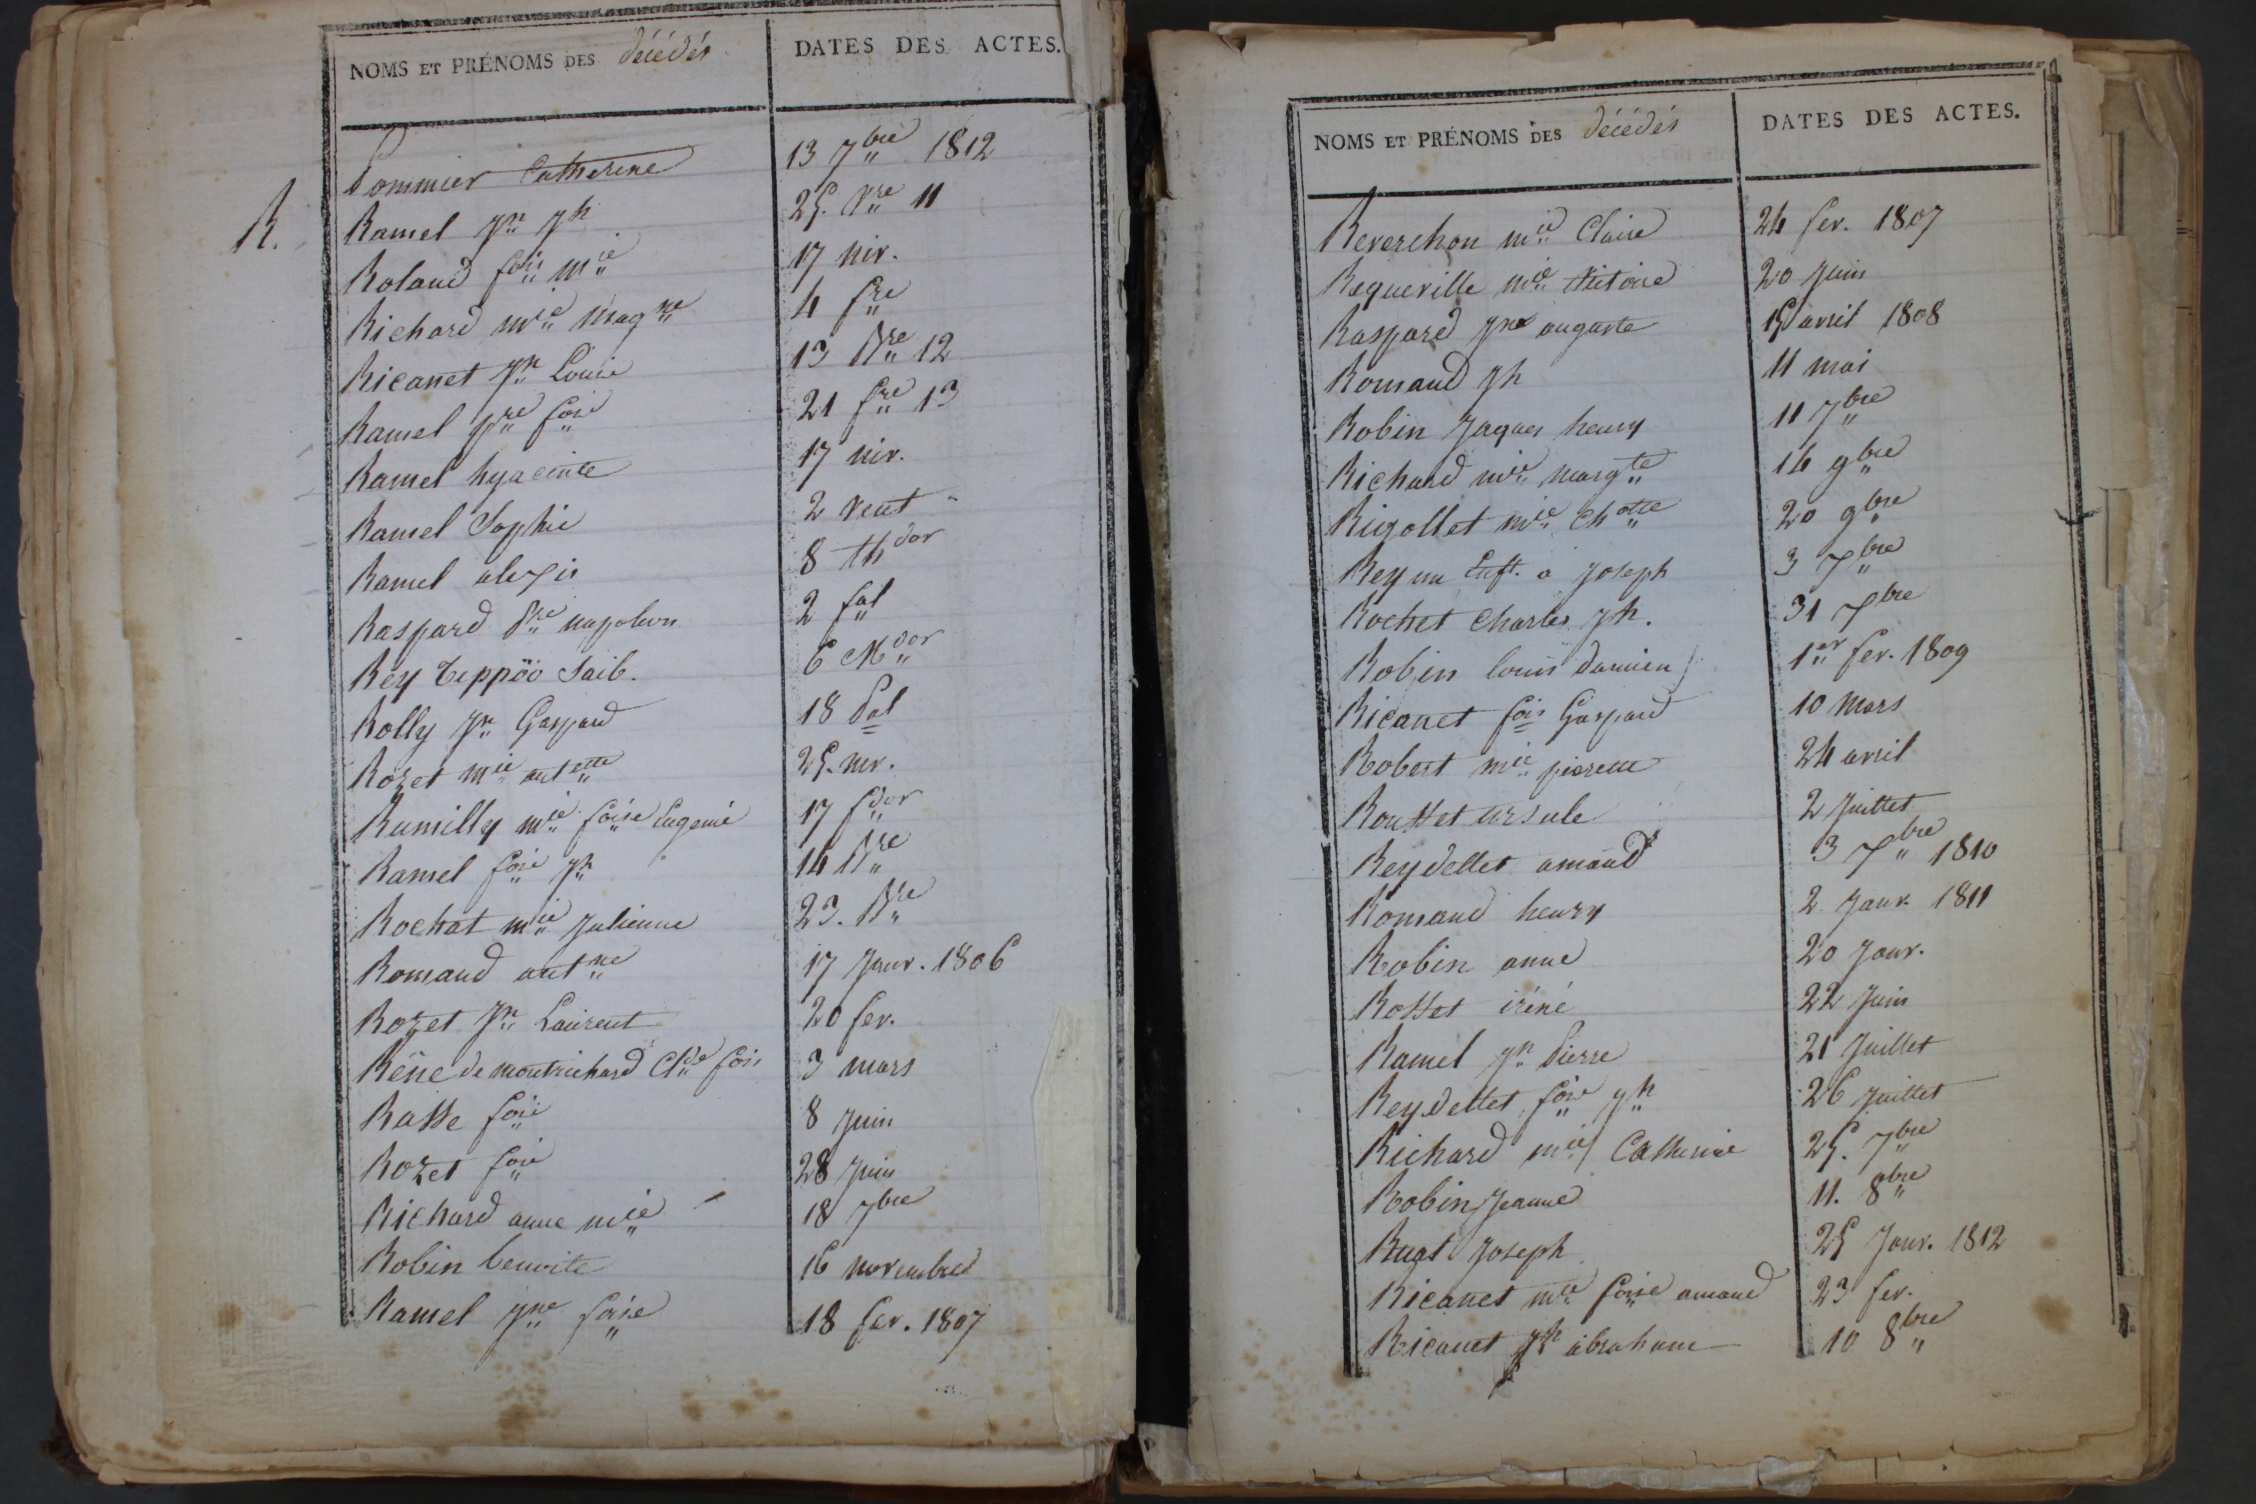 NOMS ET PRÉNOMS DES décédés DATES DES ACTES.
Pommier Catherine 13 7bre 1812
R. Ramel Jn Jh 25. Vre 11
Roland fois mie 17 niv.
Richard mie magne 4 fre
Ricanet Jn Louis 13 Bre 12
Ramel pre fois 21 fre 13
Ramel hyacinte 17 niv.
Ramel Sophie 2 vent
Ramel alexis 8 thdor
Raspard pre napoleon 2 fal
Rey Tippöo Saib. 6 Mdor
Rolly Jn Gaspard 18 Pal
Rozet mie antette 25. niv.
Rumilly mie foise Eugenie 17 fdor
Ramel fois Jh 14 Bre
Rochat mie Julienne 23. Bre
Romand antne 17 Janv. 1806
Rozet Jn Laurent 20 fev.
Réne de montrichard Clde fois 3 mars
Rasse fois 8 Juin
Rozet fois 28 Juin
Richard anne mie 18 7bre
Robin benoite 16 novembre
Ramel Jne foise 18 fev. 1807
NOMS ET PRÉNOMS DES décédés DATES DES ACTES.
Reverchon mie Claire 24 fev. 1807
Requeville mie Victoire 20 Juin
Raspard Jne auguste 15 avril 1808
Romand Jh 11 mai
Robin Jaques henry 11 7bre
Richard mie margte 16 9bre
Rigollet mie Chotte 20 9bre
Rey un Enft. a Joseph 3 7bre
Rochet Charles Jh. 31 7bre
Robin louis Damien 1er fev. 1809
Ricanet fois Gaspard 10 Mars
Robert mie pierette 24 avril
Rousset ursule 2 Juillet
Reydellet amand 3 7bre 1810
Romand henry 2 Janv. 1811
Robin anne 20 Janv.
Rosset iréné 22 Juin
Ramel Jn Pierre 21 Juillet
Reydellet fois Jh 26 Juillet
Richard mie Catherine 25. 7bre
Robin Jeanne 11. 8bre
Ruat Joseph 25 Janv. 1812
Ricanet mie foise amand 23 fev.
Ricanet Jh abraham 10 8bre